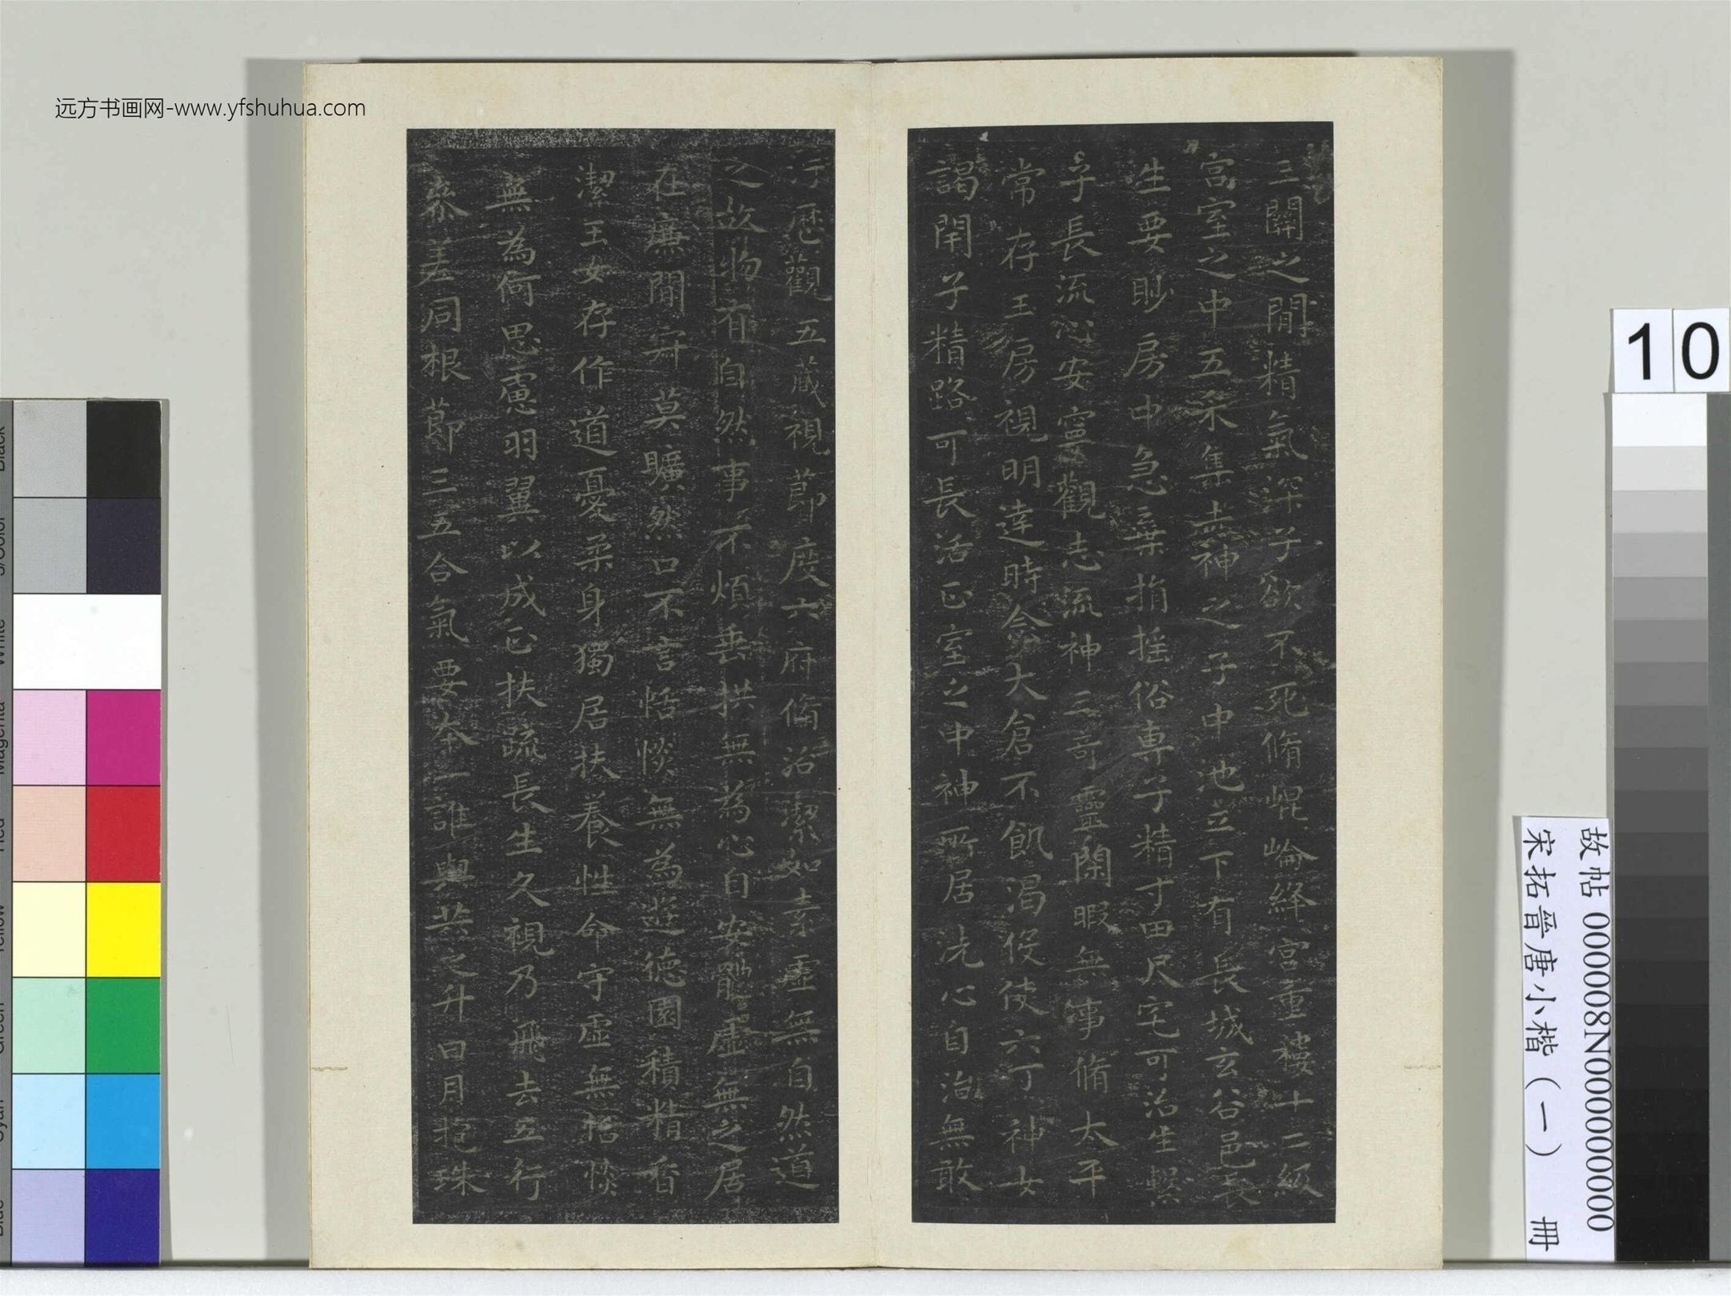 远方书画网-www.yfshuhua.com
三關之間精氣深子欲不死脩崐崘絳宮重樓十二級
宮室之中五采集赤神之子中池立下有長城玄谷邑長
生要眇房中急棄捐搖俗專子精寸田尺宅可治生繫
子長流心安寧觀志流神三奇靈閑暇無事脩太平
常存玉房視明達時念大倉不飢渴役使六丁神女
謁閉子精路可長活正室之中神所居洗心自治無敢
汙歷觀五藏視節度六府脩治潔如素虛無自然道
之故物有自然事不煩垂拱無為心自安體虛無之居
在廉間寂莫曠然口不言恬惔無為遊德園積精香
潔玉女存作道憂柔身獨居扶養性命守虛無恬惔
無為何思慮羽翼以成正扶疏長生久視乃飛去五行
參差同根節三五合氣要本一誰與共之升日月抱珠
10
故帖 000008N000000000
宋拓晉唐小楷（一） 冊